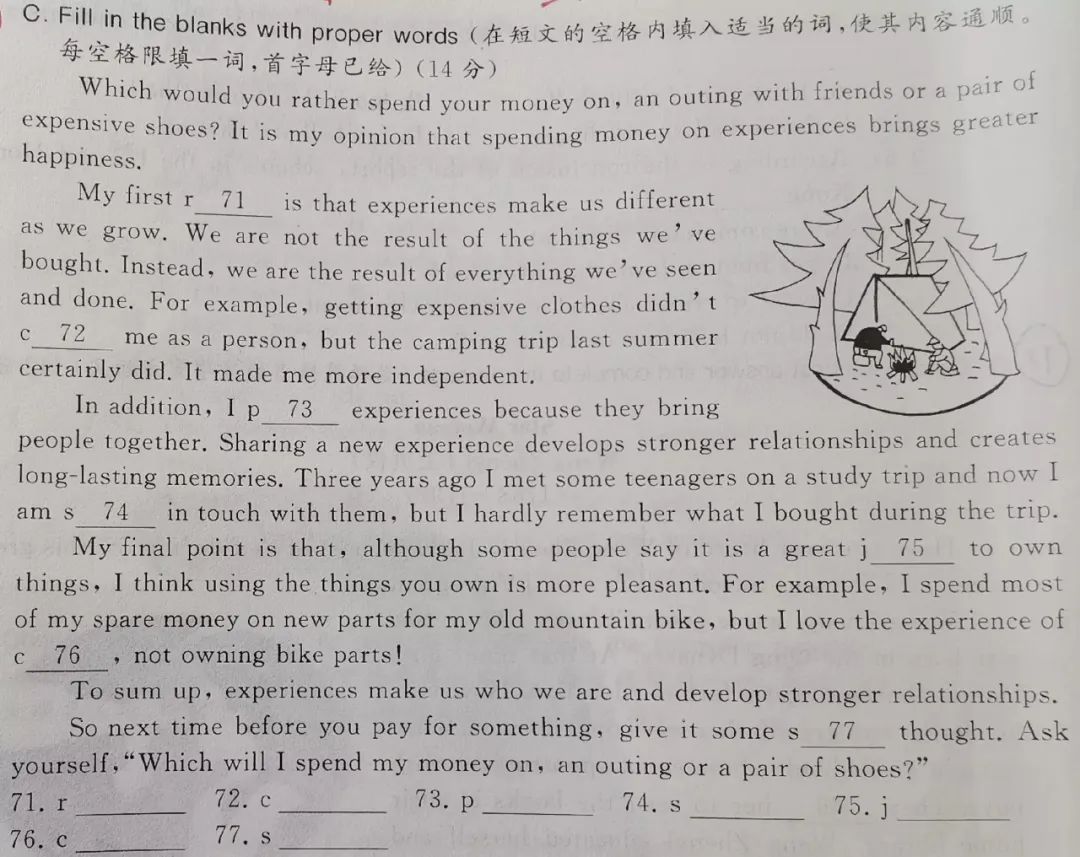 C. Fill in the blanks with proper words (在短文的空格内填入适当的词,使其内容通顺。
每空格限填一词,首字母已给) (14 分)
Which would you rather spend your money on, an outing with friends or a pair of
expensive shoes? It is my opinion that spending money on experiences brings greater
happiness.
My first r 71 is that experiences make us different
as we grow. We are not the result of the things we've
bought. Instead, we are the result of everything we've seen
and done. For example, getting expensive clothes didn't
c 72 me as a person, but the camping trip last summer
certainly did. It made me more independent.
In addition, I p 73 experiences because they bring
people together. Sharing a new experience develops stronger relationships and creates
long-lasting memories. Three years ago I met some teenagers on a study trip and now I
am s 74 in touch with them, but I hardly remember what I bought during the trip.
My final point is that, although some people say it is a great j 75 to own
things, I think using the things you own is more pleasant. For example, I spend most
of my spare money on new parts for my old mountain bike, but I love the experience of
c 76 , not owning bike parts!
To sum up, experiences make us who we are and develop stronger relationships.
So next time before you pay for something, give it some s 77 thought. Ask
yourself, "Which will I spend my money on, an outing or a pair of shoes?"
71. r 72. c 73. p 74. s 75. j
76. c 77. s